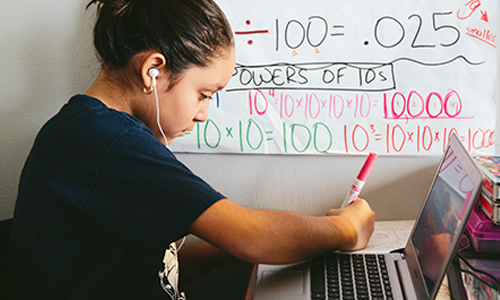 ÷ 100 = .025
smaller
POWERS OF 10s
10⁴=10×10×10×10 10,000
10×10=100 10³=10×10×10=1000